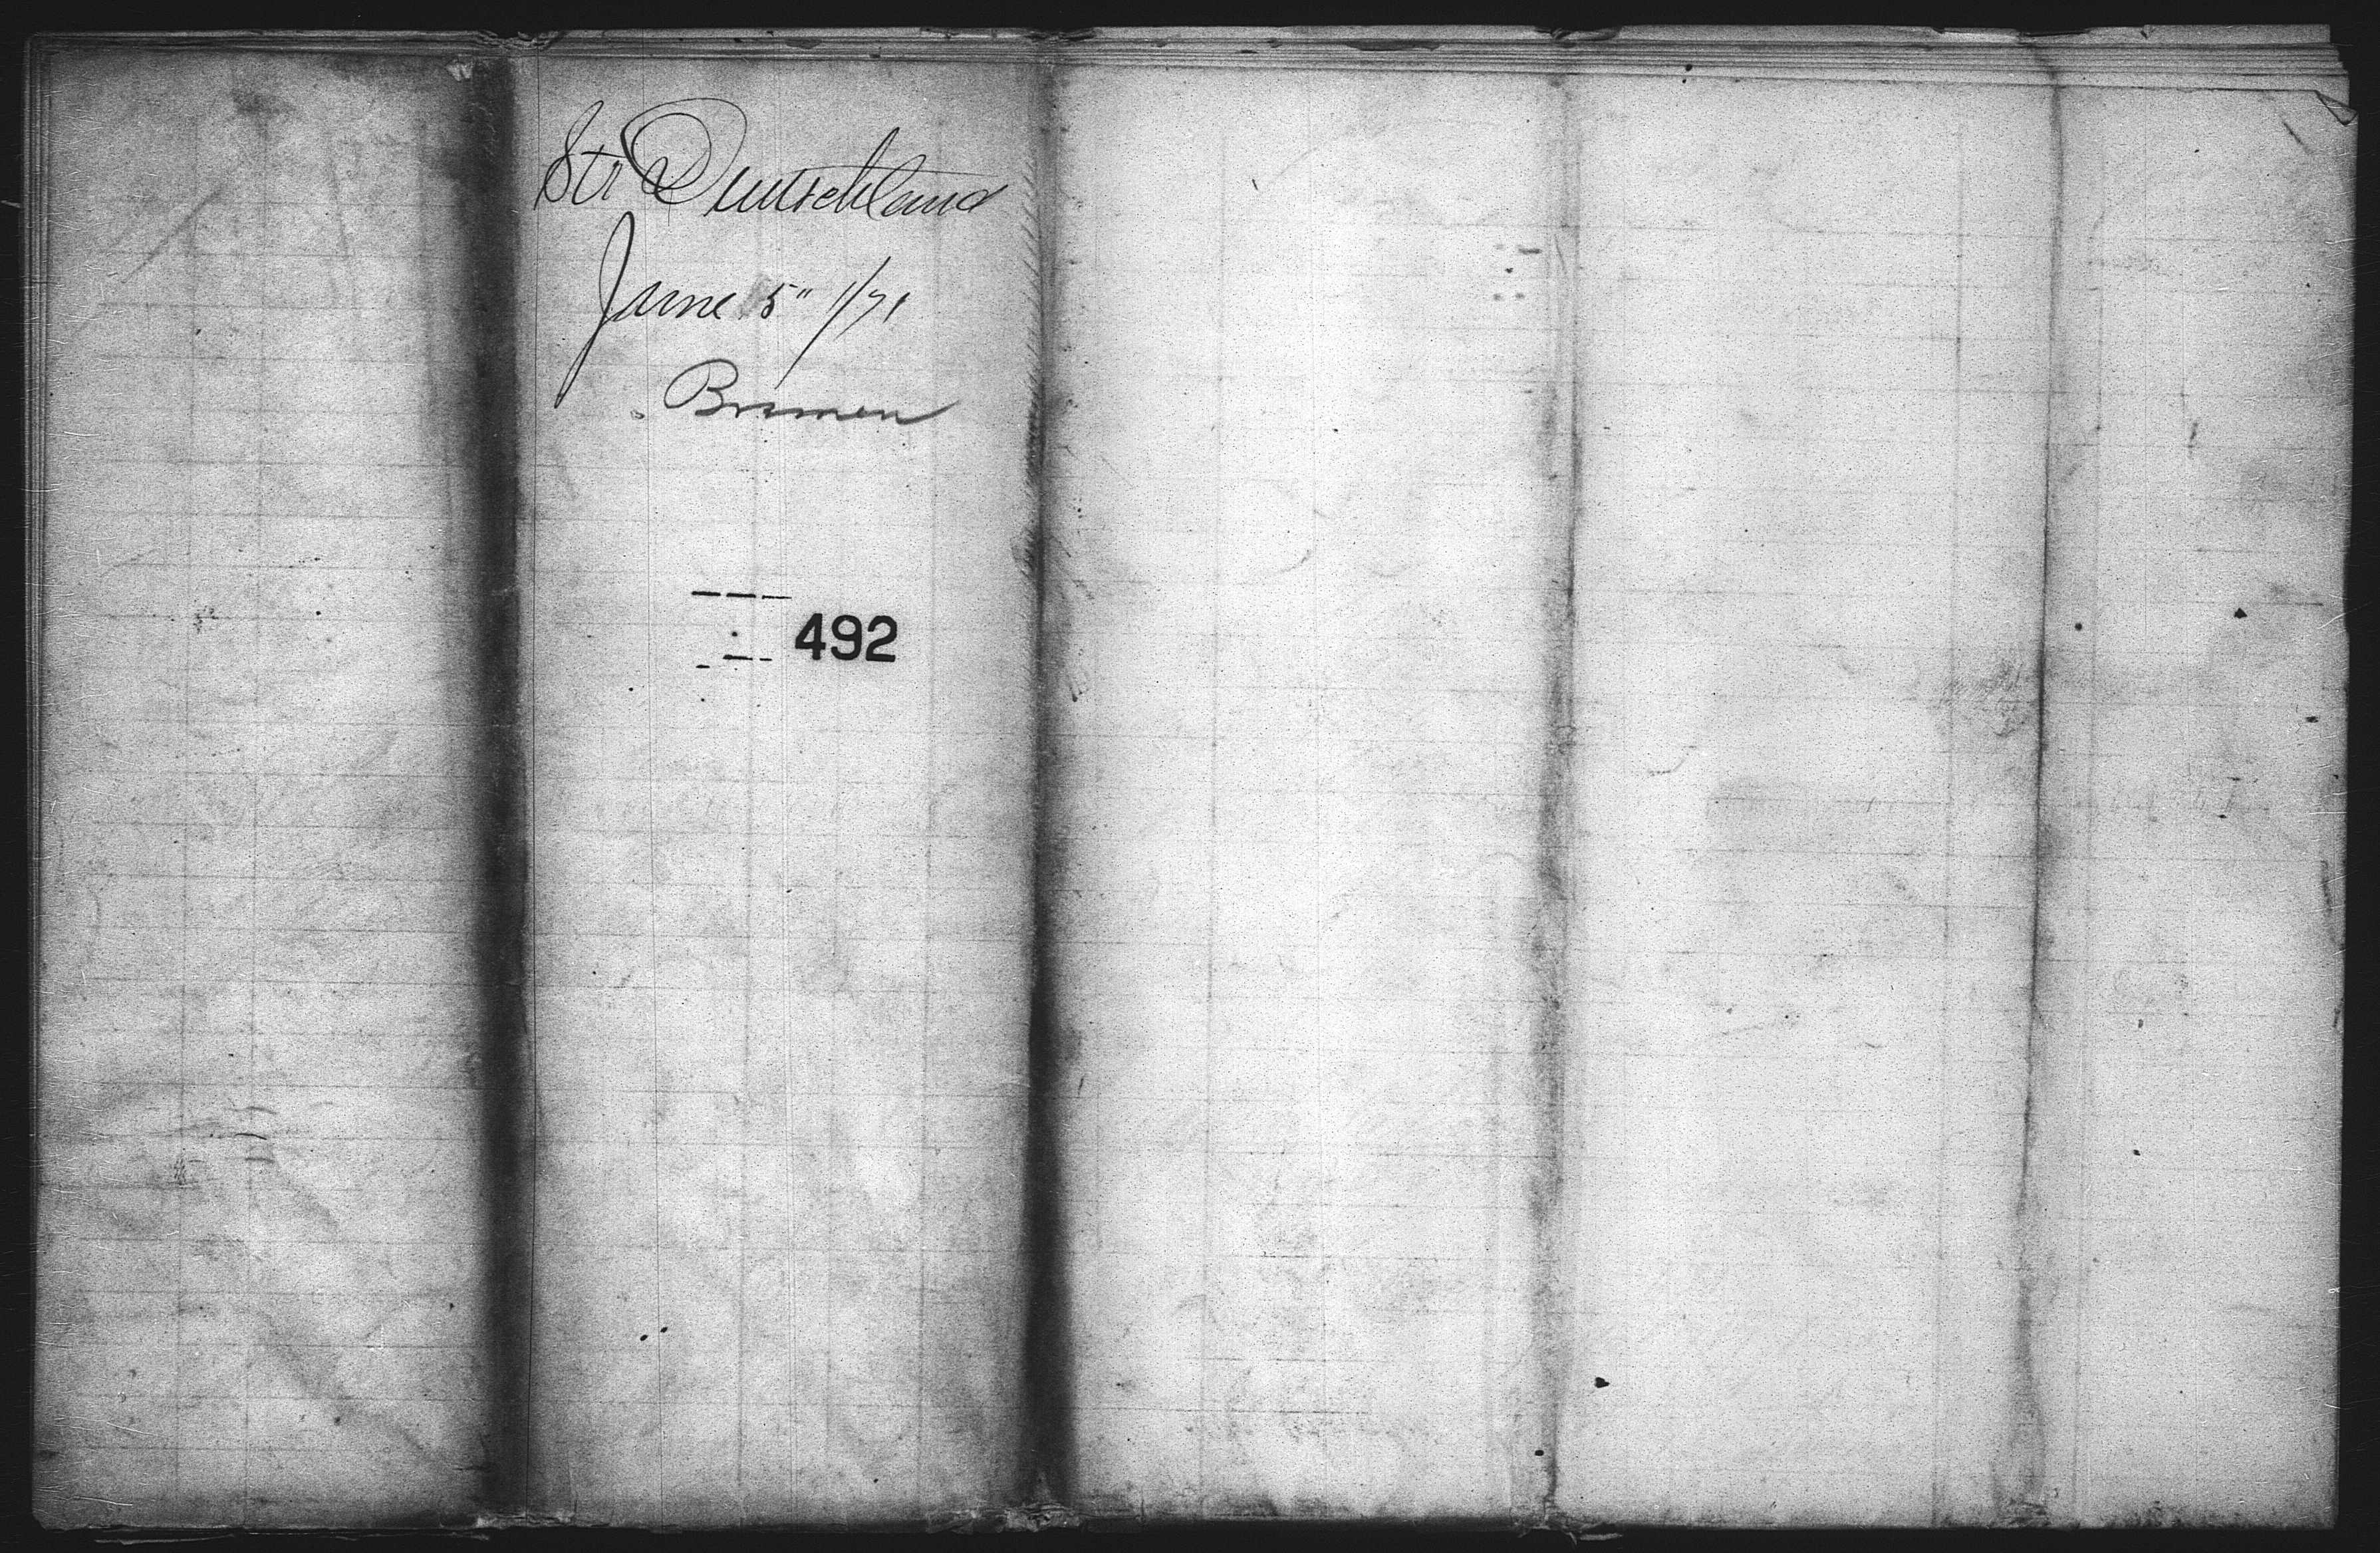 Str Deutschland
June 5" 1/71
Bremen
492